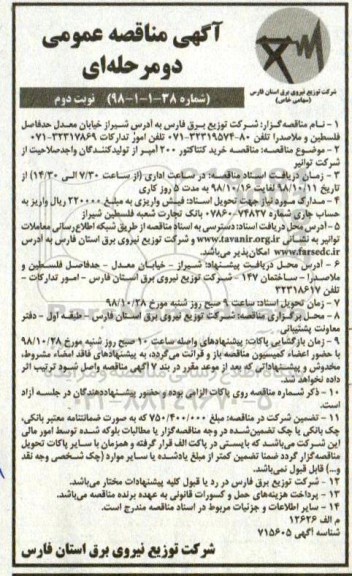 آگهی مناقصه عمومی
دومرحله‌ای
شرکت توزیع نیروی برق استان فارس
(سهامی خاص)
(شماره ۳۸-۱-۱-۹۸) نوبت دوم
۱ - نام مناقصه گزار: شرکت توزیع برق فارس به آدرس شیراز خیابان معدل حدفاصل
فلسطین و ملاصدرا تلفن ۸۰-۳۲۳۱۹۵۷۴-۰۷۱ تلفن امور تدارکات ۳۲۳۱۷۸۶۹-۰۷۱
۲ - موضوع مناقصه: مناقصه خرید کنتاکتور ۲۰۰ آمپر از تولیدکنندگان واجدصلاحیت از
شرکت توانیر
۳ - زمان دریافت اسناد مناقصه: در ساعات اداری (از ساعت ۷/۳۰ الی ۱۴/۳۰) از
تاریخ ۹۸/۱۰/۱۱ لغایت ۹۸/۱۰/۱۶ به مدت ۵ روز کاری
۴ - مدارک مورد نیاز جهت تحویل اسناد: فیش واریزی به مبلغ ۳۲۰۰۰۰ ریال واریز به
حساب جاری شماره ۰۷۸۶۰۰۷۴۸۲۷ بانک تجارت شعبه فلسطین شیراز
۵ - آدرس محل دریافت اسناد: دسترسی به اسناد مناقصه از طریق شبکه اطلاع رسانی معاملات
توانیر به نشانی www.tavanir.org.ir و شرکت توزیع نیروی برق استان فارس به آدرس
www.farsedc.ir امکان‌پذیر می‌باشد.
۶ - آدرس محل دریافت پیشنهاد: شیراز - خیابان معدل - حدفاصل فلسطین و
ملاصدرا - ساختمان ۱۴۷ - شرکت توزیع نیروی برق استان فارس - امور تدارکات -
تلفن ۳۲۳۱۸۶۱۷
۷ - زمان تحویل اسناد: ساعت ۹ صبح روز شنبه مورخ ۹۸/۱۰/۲۸
۸ - محل برگزاری مناقصه: شرکت توزیع نیروی برق استان فارس - طبقه اول - دفتر
معاونت پشتیبانی
۹ - زمان بازگشایی پاکات: پیشنهادهای واصله ساعت ۱۰ صبح روز شنبه مورخ ۹۸/۱۰/۲۸
با حضور اعضاء کمیسیون مناقصه باز و قرائت می‌گردد، به پیشنهادهای فاقد امضاء، مشروط،
مخدوش و پیشنهاداتی که بعد از موعد مقرر در بند ۷ آگهی مناقصه واصل شود ترتیب اثر
داده نخواهد شد.
۱۰ - ذکر شماره مناقصه روی پاکات الزامی بوده و حضور پیشنهاددهندگان در جلسه آزاد
است.
۱۱ - تضمین شرکت در مناقصه: مبلغ ۷۵۰/۴۰۰/۰۰۰ که به صورت ضمانتنامه معتبر بانکی،
چک بانکی یا چک تضمین‌شده در وجه مناقصه‌گزار یا مطالبات بلوکه شده توسط امور مالی
این شرکت می‌باشد که بایستی در پاکت الف قرار گرفته و همزمان با سایر پاکات تحویل
مناقصه‌گزار گردد ضمنا تضمین کمتر از مبلغ یادشده یا سایر موارد (چک شخصی وجه نقد
و...) قابل قبول نمی‌باشد.
۱۲ - شرکت توزیع برق فارس در رد یا قبول کلیه پیشنهادات مختار می‌باشد.
۱۳ - پرداخت هزینه‌های حمل و کسورات قانونی به عهده برنده مناقصه می‌باشد.
۱۴ - سایر اطلاعات و جزئیات مربوط در اسناد مناقصه مندرج است.
م الف ۱۲۶۲۶
شناسه آگهی ۷۱۵۶۰۵
شرکت توزیع نیروی برق استان فارس